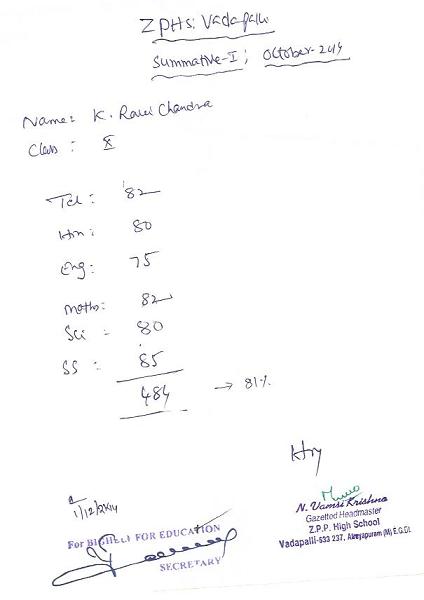 ZPHS: Vadapalli
Summative-I; October-2014
Name: K. Ravi Chandra
Class: X
Tel: 82
Hn: 80
Eng: 75
Maths: 82
Sci: 80
SS: 85
484 → 81%
1/12/2014
N. Vamsi Krishna
Gazetted Headmaster
Z.P.P. High School
Vadapalli-533 237. (M) E.G.Dt.
For BIGHELP FOR EDUCATION
SECRETARY